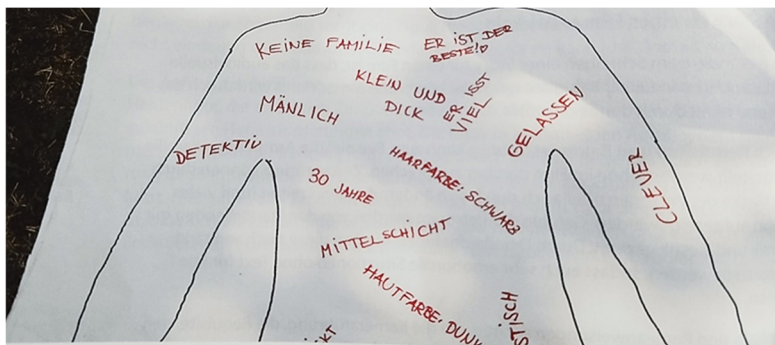 KEINE FAMILIE
ER IST DER
BESTE!
KLEIN UND
DICK
ER ISST
VIEL
MÄNLICH
GELASSEN
DETEKTIV
HAARFARBE: SCHWARZ
CLEVER
30 JAHRE
MITTELSCHICHT
HAUTFARBE: